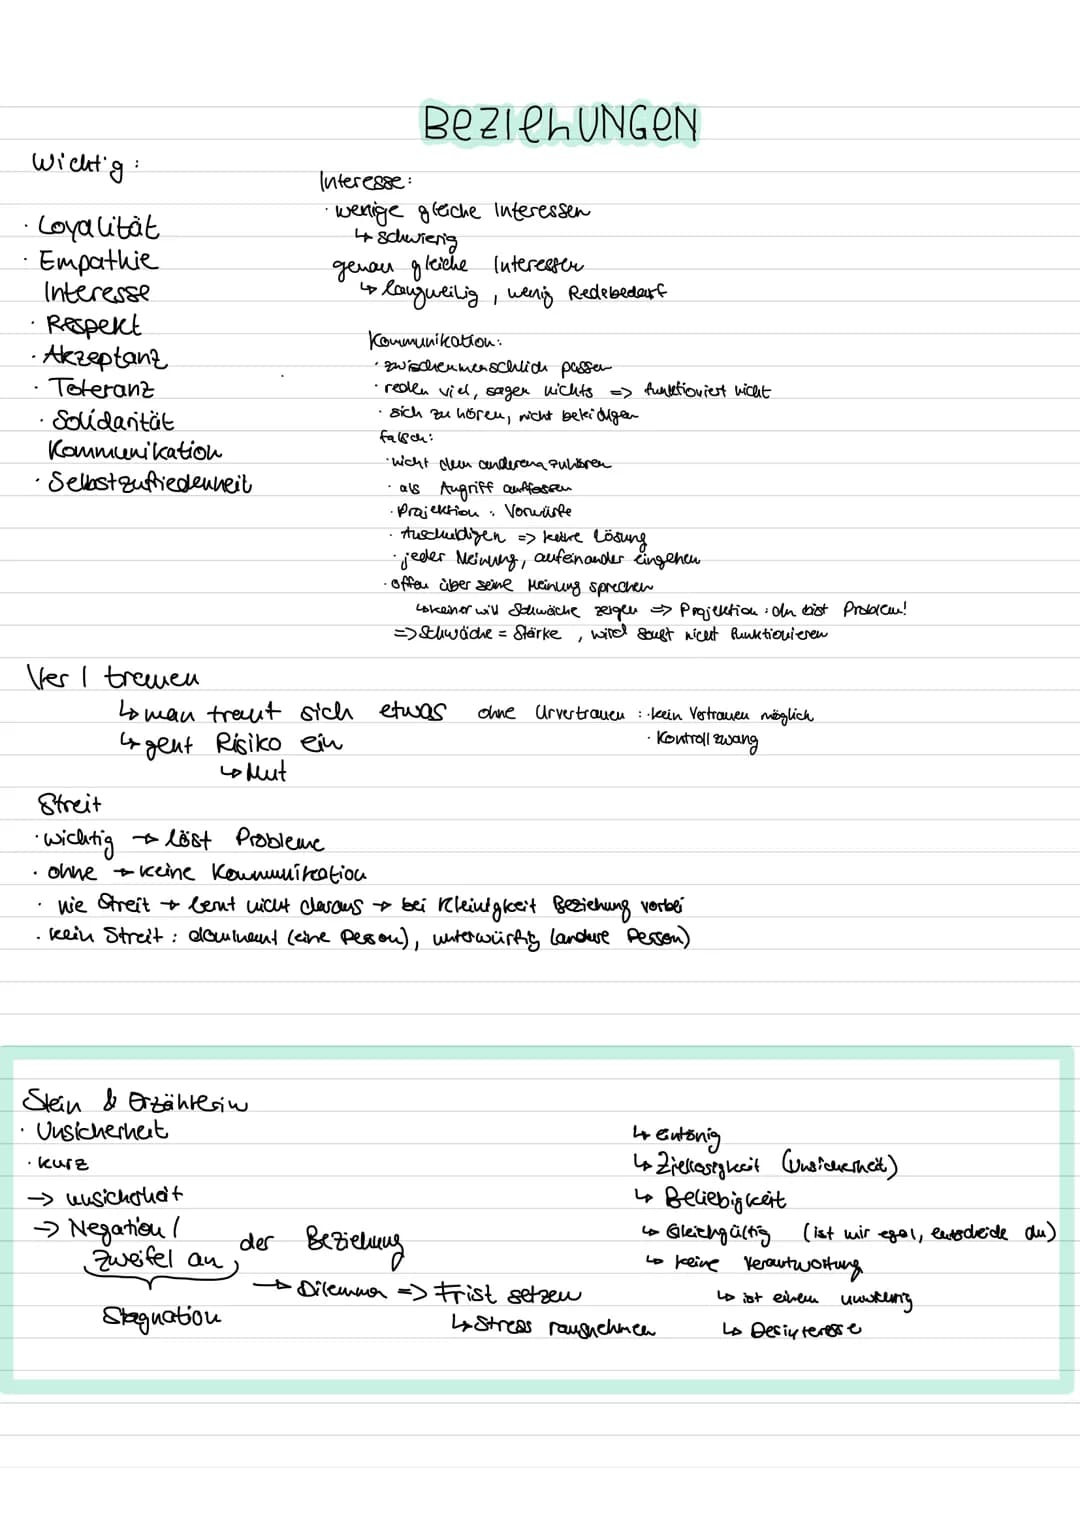 BEZIEHUNGEN
Wichtig:
· Loyalität
· Empathie
Interesse
· Respekt
· Akzeptanz
· Toleranz
· Solidarität
Kommunikation
· Selbstzufriedenheit
Interesse:
· wenige gleiche Interessen
↳ schwierig
genau gleiche Interessen
↳ langweilig, wenig Redebedarf
Kommunikation:
· zwischenmenschlich passen
· reden viel, sagen nichts => funktioniert nicht
· sich zu hören, nicht beleidigen
falsch:
· nicht dem anderen zuhören
· als Angriff auffassen
· Projektion: Vorwürfe
· Anschuldigen => keine Lösung
· jeder Meinung, aufeinander eingehen
· offen über seine Meinung sprechen
↳ keiner will Schwäche zeigen => Projektion: du bist Problem!
=> Schwäche = Stärke, wird sonst nicht funktionieren
Ver | trauen
↳ man traut sich etwas
↳ geht Risiko ein
↳ Mut
ohne Urvertrauen: · kein Vertrauen möglich
· Kontrollzwang
Streit
· wichtig → löst Probleme
· ohne → keine Kommunikation
· nie Streit → lernt nicht daraus → bei Kleinigkeit Beziehung vorbei
· kein Streit: dominant (eine Person), unterwürfig (andere Person)
Stein & Erzählerin
· Unsicherheit
· kurz
→ unsicherheit
→ Negation /
Zweifel an, der Beziehung
Stagnation
→ Dilemma => Frist setzen
↳ Stress rausnehmen
↳ eintönig
↳ Ziellosigkeit (Unsicherheit)
↳ Beliebigkeit
↳ Gleichgültig (ist mir egal, entscheide du)
↳ keine Verantwortung
↳ ist einem unwichtig
↳ Desinteresse